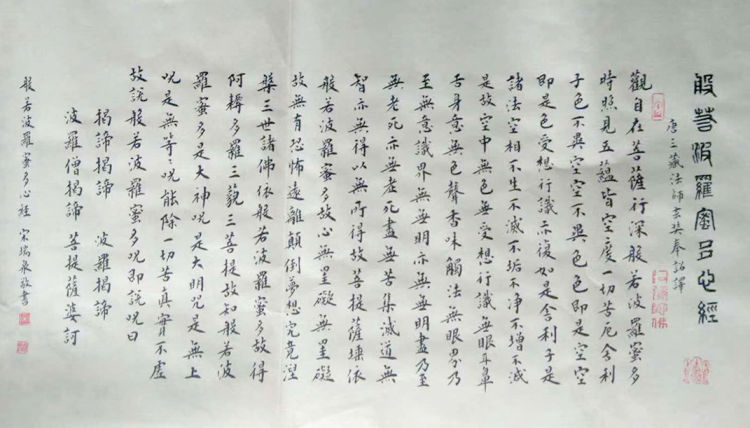 般若波羅蜜多心經
唐三藏法師玄奘奉詔譯
觀自在菩薩行深般若波羅蜜多
時照見五蘊皆空度一切苦厄舍利
子色不異空空不異色色即是空空
即是色受想行識亦復如是舍利子是
諸法空相不生不滅不垢不净不增不減
是故空中無色無受想行識無眼耳鼻
舌身意無色聲香味觸法無眼界乃
至無意識界無無明亦無無明盡乃至
無老死亦無老死盡無苦集滅道無
智亦無得以無所得故菩提薩埵依
般若波羅蜜多故心無罣礙無罣礙
故無有恐怖遠離顛倒夢想究竟涅
槃三世諸佛依般若波羅蜜多故得
阿耨多羅三藐三菩提故知般若波
羅蜜多是大神咒是大明咒是無上
咒是無等々咒能除一切苦真實不虛
故說般若波羅蜜多咒即說咒曰
揭諦揭諦 波羅揭諦
波羅僧揭諦 菩提薩婆訶
般若波羅蜜多心經 宋瑞敬書